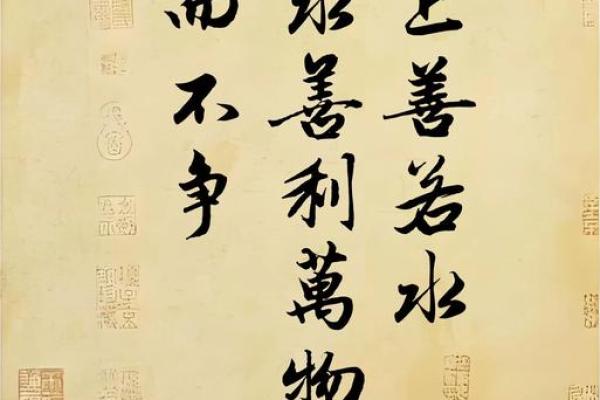 上善若水
水善利萬物
而不争